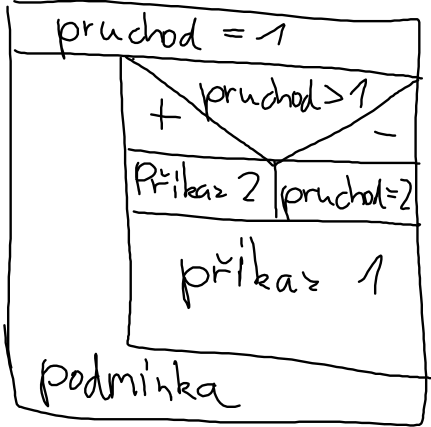 pruchod = 1
pruchod > 1
+ -
Příkaz 2 pruchod=2
příkaz 1
podmínka